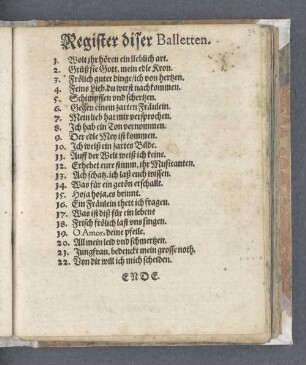 Register diser Balletten.
1. Wolt jhr hören ein lieblich art.
2. Grüß sie Gott, mein edle Kron.
3. Frölich guter dinge/ich von hertzen.
4. Feins Lieb, du wirst nach kommen.
5. Schimpffen und schertzen.
6. Gegen einem zarten Fräulein.
7. Mein lieb hat mir versprochen.
8. Ich hab ein Ton vernommen.
9. Der edle Mey ist kommen.
10. Ich weiß ein zartes Bilde.
11. Auff der Welt weiß ich keine.
12. Erhebet eure stimm, ihr Musicanten.
13. Ach schatz, ich laß euch wissen.
14. Was für ein getön erschallt.
15. Hoja hoja, es brinnt.
16. Ein Fräulein thett ich fragen.
17. Was ist diß für ein lebene
18. Frisch frölich last uns singen.
19. O Amor, deine pfeile.
20. All mein leid vnd schmertzen.
21. Jungfrau, bedenckt mein grosse noth.
22. Von dir will ich mich scheiden.
ENDE.